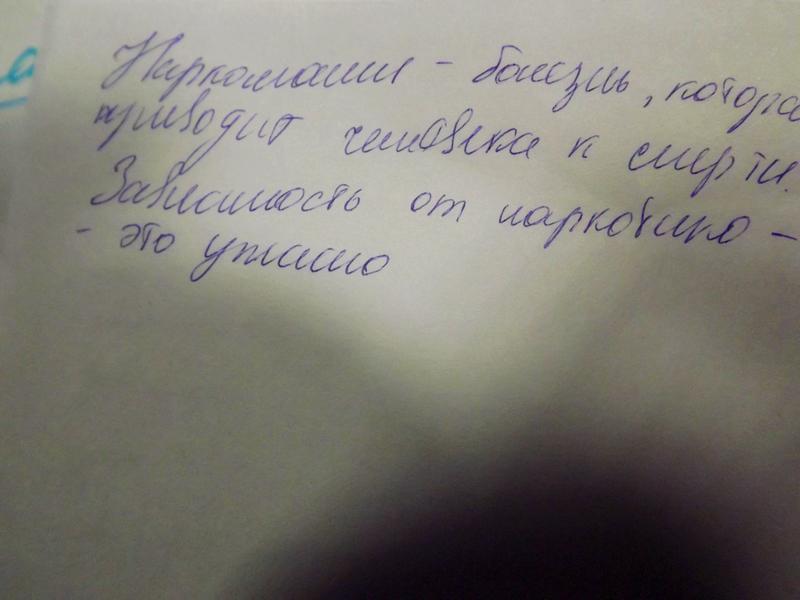 Наркомании - болезнь, котора
приводит человека к смерти.
Зависимость от наркотико -
- это ужасно